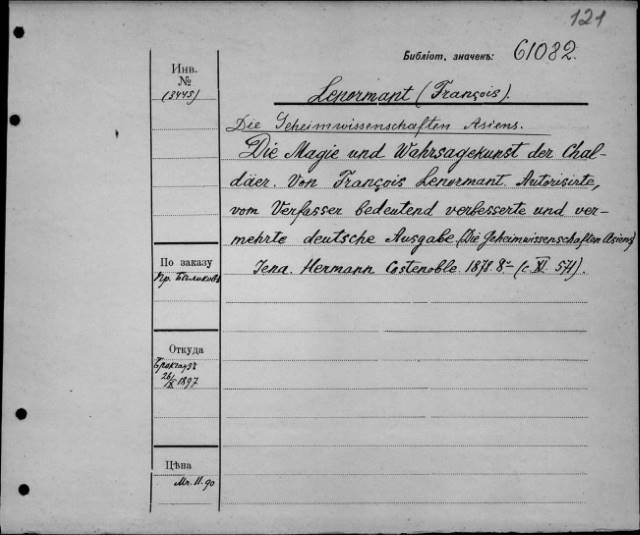 121
Библіот. значекъ: 61082.
Инв.
№
(3445)
Lenormant (François).
Die Geheimwissenschaften Asiens.
Die Magie und Wahrsagekunst der Chal-
däer. Von François Lenormant. Autorisirte,
vom Verfasser bedeutend verbesserte und ver-
mehrte deutsche Ausgabe (Die Geheimwissenschaften Asiens)
Jena. Hermann Costenoble. 1878. 8º (c. XI. 571).
По заказу
Пр. Бѣликова
Откуда
Брокгаузъ
1897
Цѣна
Mr. 11.90